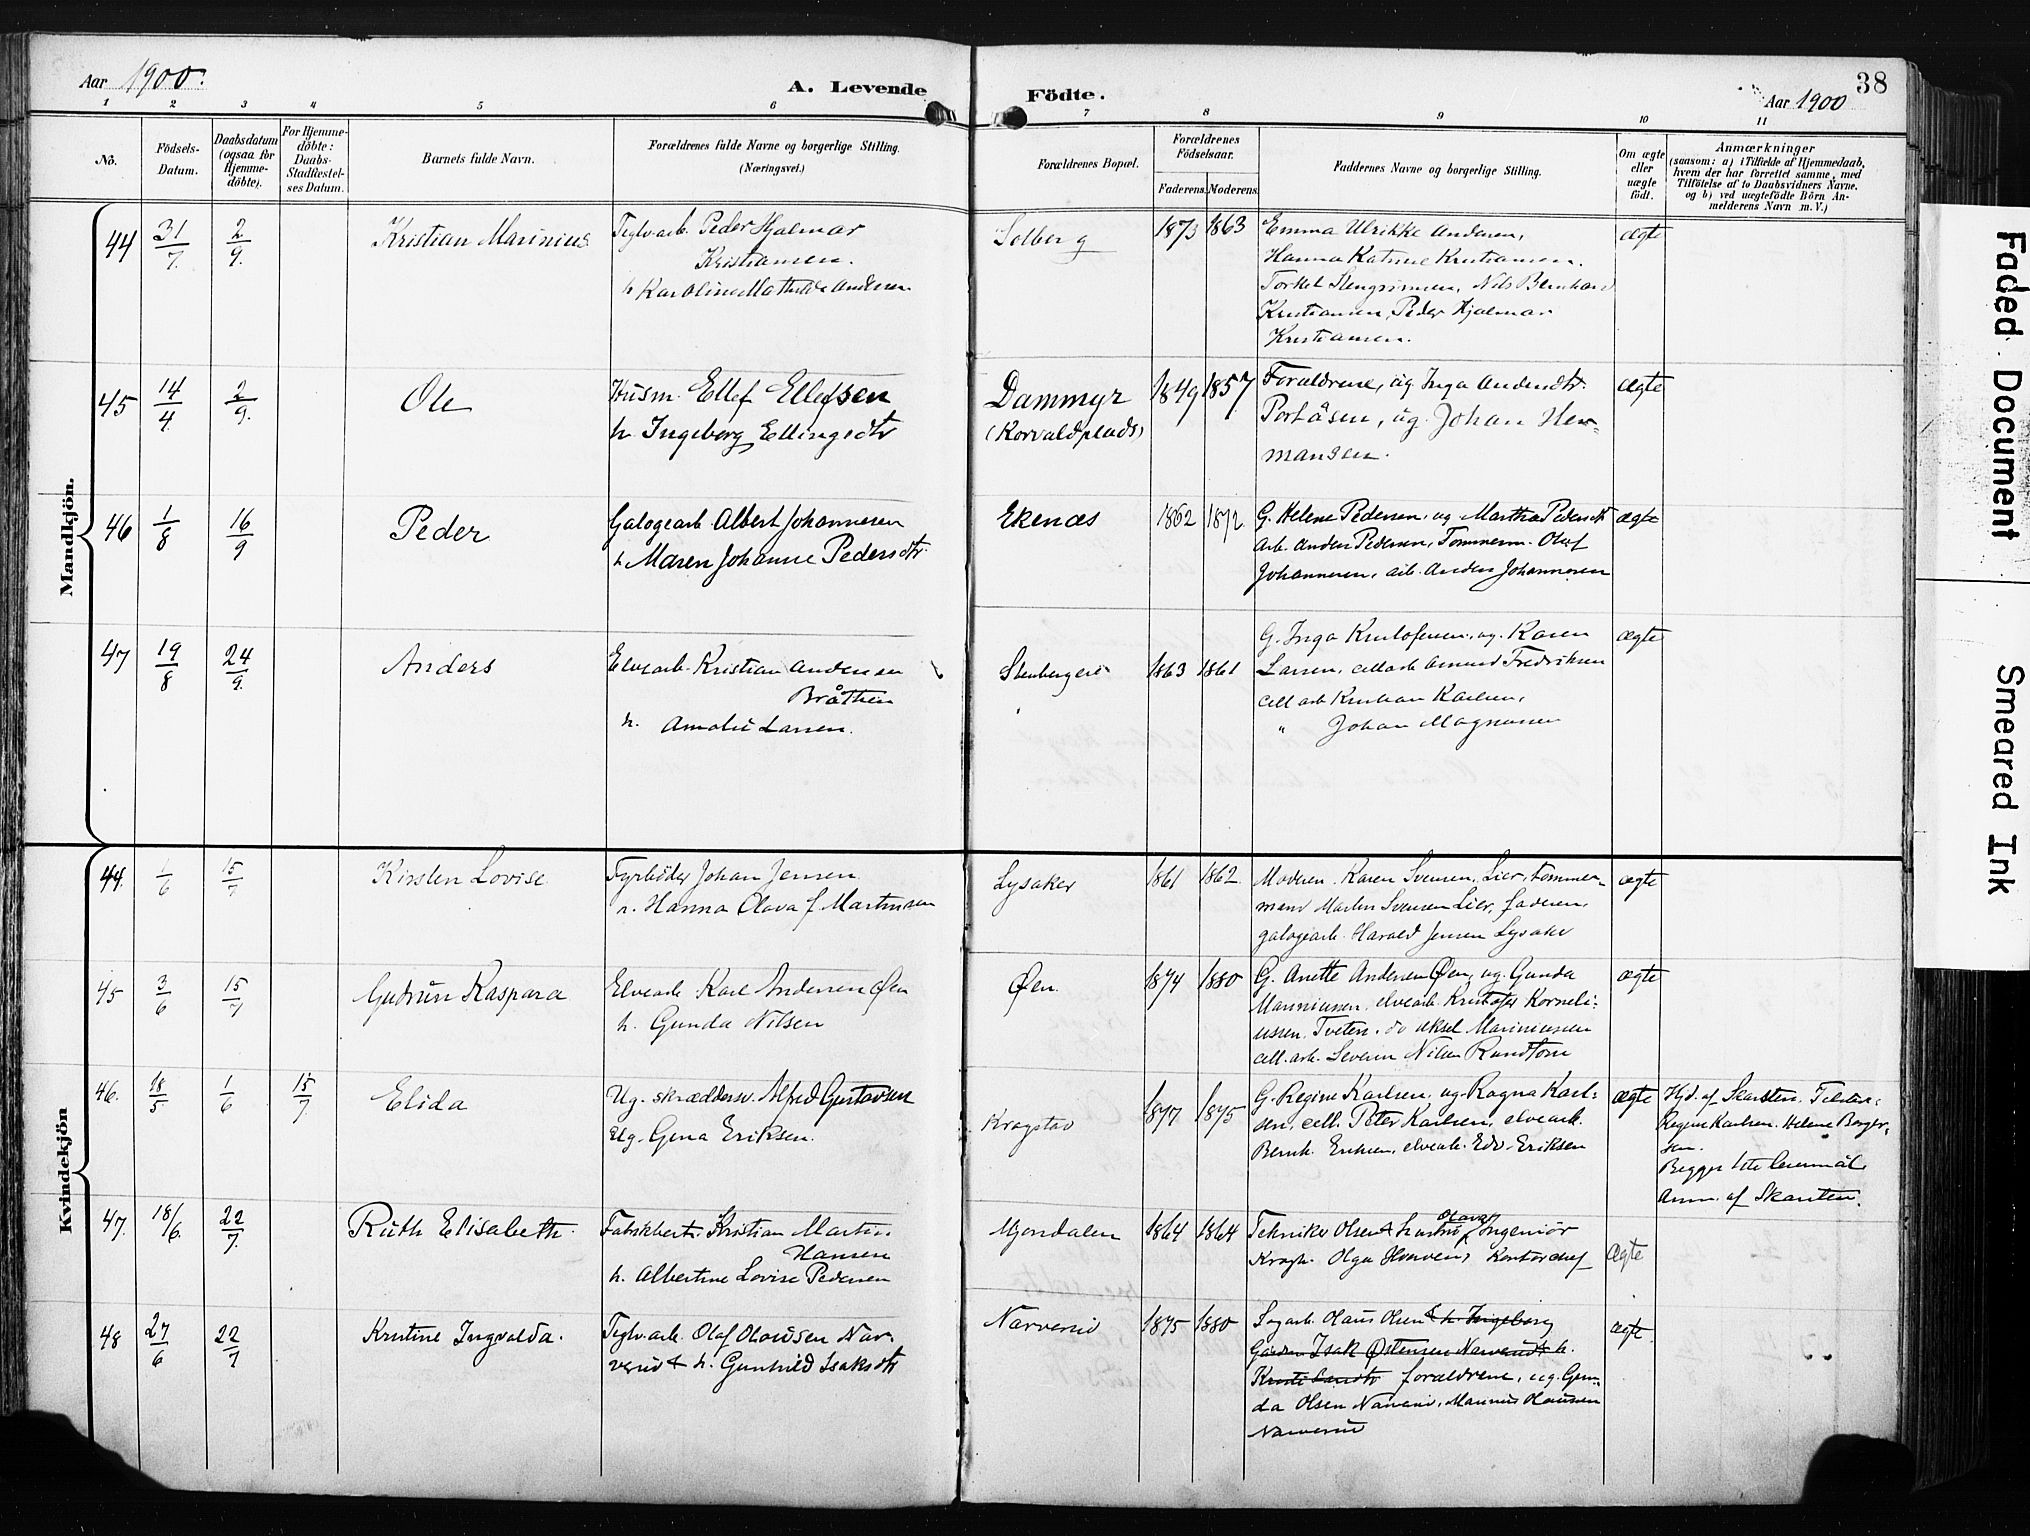 Aar 1900.
A. Levende
Födte.
Aar 1900
38
1 2 3 4 5 6 7 8 9 10 11
No.
Födsels-Datum.
Daabsdatum (ogsaa for Hjemme-döbte).
For Hjemme-döbte: Daabs-Stadfæstel-ses Datum.
Barnets fulde Navn.
Forældrenes fulde Navne og borgerlige Stilling.
(Næringsvei.)
Forældrenes Bopæl.
Forældrenes Födselsaar.
Faderens. Moderens.
Faddernes Navne og borgerlige Stilling.
Om ægte eller uægte födt.
Anmærkninger
(saasom: a) i Tilfælde af Hjemmedaab, hvem der har forrettet samme, med Tilföielse af to Daabsvidners Navne, og b) ved uægtefödte Börn An-melderens Navn m. V.)
Mandkjön.
44 31/7. 2/9. Kristian Marinius. Teglv.arb. Peder Hjalmar
Kristiansen.
h. Karoline Mathilde Andersen
Solberg 1873 1863 Emma Ulrikke Andersen,
Hanna Katrine Kristiansen.
Nils Bernhard
Kristiansen, Peder Hjalmar
Kristiansen.
ægte
45 14/4. 2/9. Ole Husm. Ellef Ellefsen
h. Ingeborg Ellingsdtr
Dammyr
(Korvaldplads)
1849 1857 Forældrene, ug. Inga Andersdtr.
Portåsen, ug. Johan Her-
mansen.
ægte
46 1/8 16/9 Peder Galogearb. Albert Johannesen
h. Maren Johanne Pedersdtr.
Ekenæs 1862 1872. G. Helene Pedersen, ug. Martha Pedersdtr
Arb. Anders Pedersen, Tømmerm. Oluf
Johannesen, arb. Anders Johannesen
ægte
47 19/8 24/9. Anders Elvearb. Kristian Andersen
Bråthen
h. Amalie Larsen.
1863 1861 G. Inga Kristofersen, ug. Karen
Larsen, cell.arb Amund Fredriksen
cell arb Kristian Karlsen,
" Johan Magnusen
ægte
Kvindekjön
44. 1/6 15/7 Kirsten Lovise. Fyrbøder Johan Jensen
h. Hanna Olava f. Martinsen
Lysaker 1861 1862. Moderen. Karen Svensen, Lier, tømmer-
mand Martin Svensen Lier, faderen,
galogearb. Harald Jensen Lysaker
ægte
45 3/6 15/7 Gudrun Kaspara Elvearb Karl Andersen Øen
h. Gunda Nilsen
Øen. 1874 1880 G. Anette Andersen Øen, ug. Gunda
Mariniussen, elvearb. Kristofer Korneli-
ussen, Tveten. do Aksel Mariniussen
cell. arb. Severin Nilsen Rundtom
ægte
46. 18/5. 1/6 15/7 Elida Ug. skræddersv. Alfred Gustavsen
Ug. Gena Eriksen.
Kragstad 1877 1875 G. Regine Karlsen, ug. Ragna Karl-
sen, cell. Peter Karlsen, elvearb.
Bernh. Eriksen, elvearb. Edv. Eriksen
ægte Hjd. af Skarsten.
Regine Karlsen. Helene Borger-
sen.
Begges 1ste leiermål.
Anm. af Skarsten.
47. 18/6. 22/7. Ruth Elisabeth. Fabrikbest. Kristian Martin
Hansen
h. Albertine Lovise Pedersen
Mjøndalen 1864 1864 Tekniker Olsen & hustru Olava, Ingeniør
Kragh. Olga Kontorchef
Ægte
48 27/6 22/7 Kristine Ingvalda. Teglv.arb. Olaf Olausen Nar-
verud & h. Gunhild Isaksdtr
Narverud 1875 1880 Sagarb. Olaus Olsen & h. Ingeborg
Gårdm Isak Østensen Narverud & h.
forældrene, ug. Gun-
da Olsen Narverud, Marinus Olausen
Narverud
ægte.
Faded Document
Smeared Ink